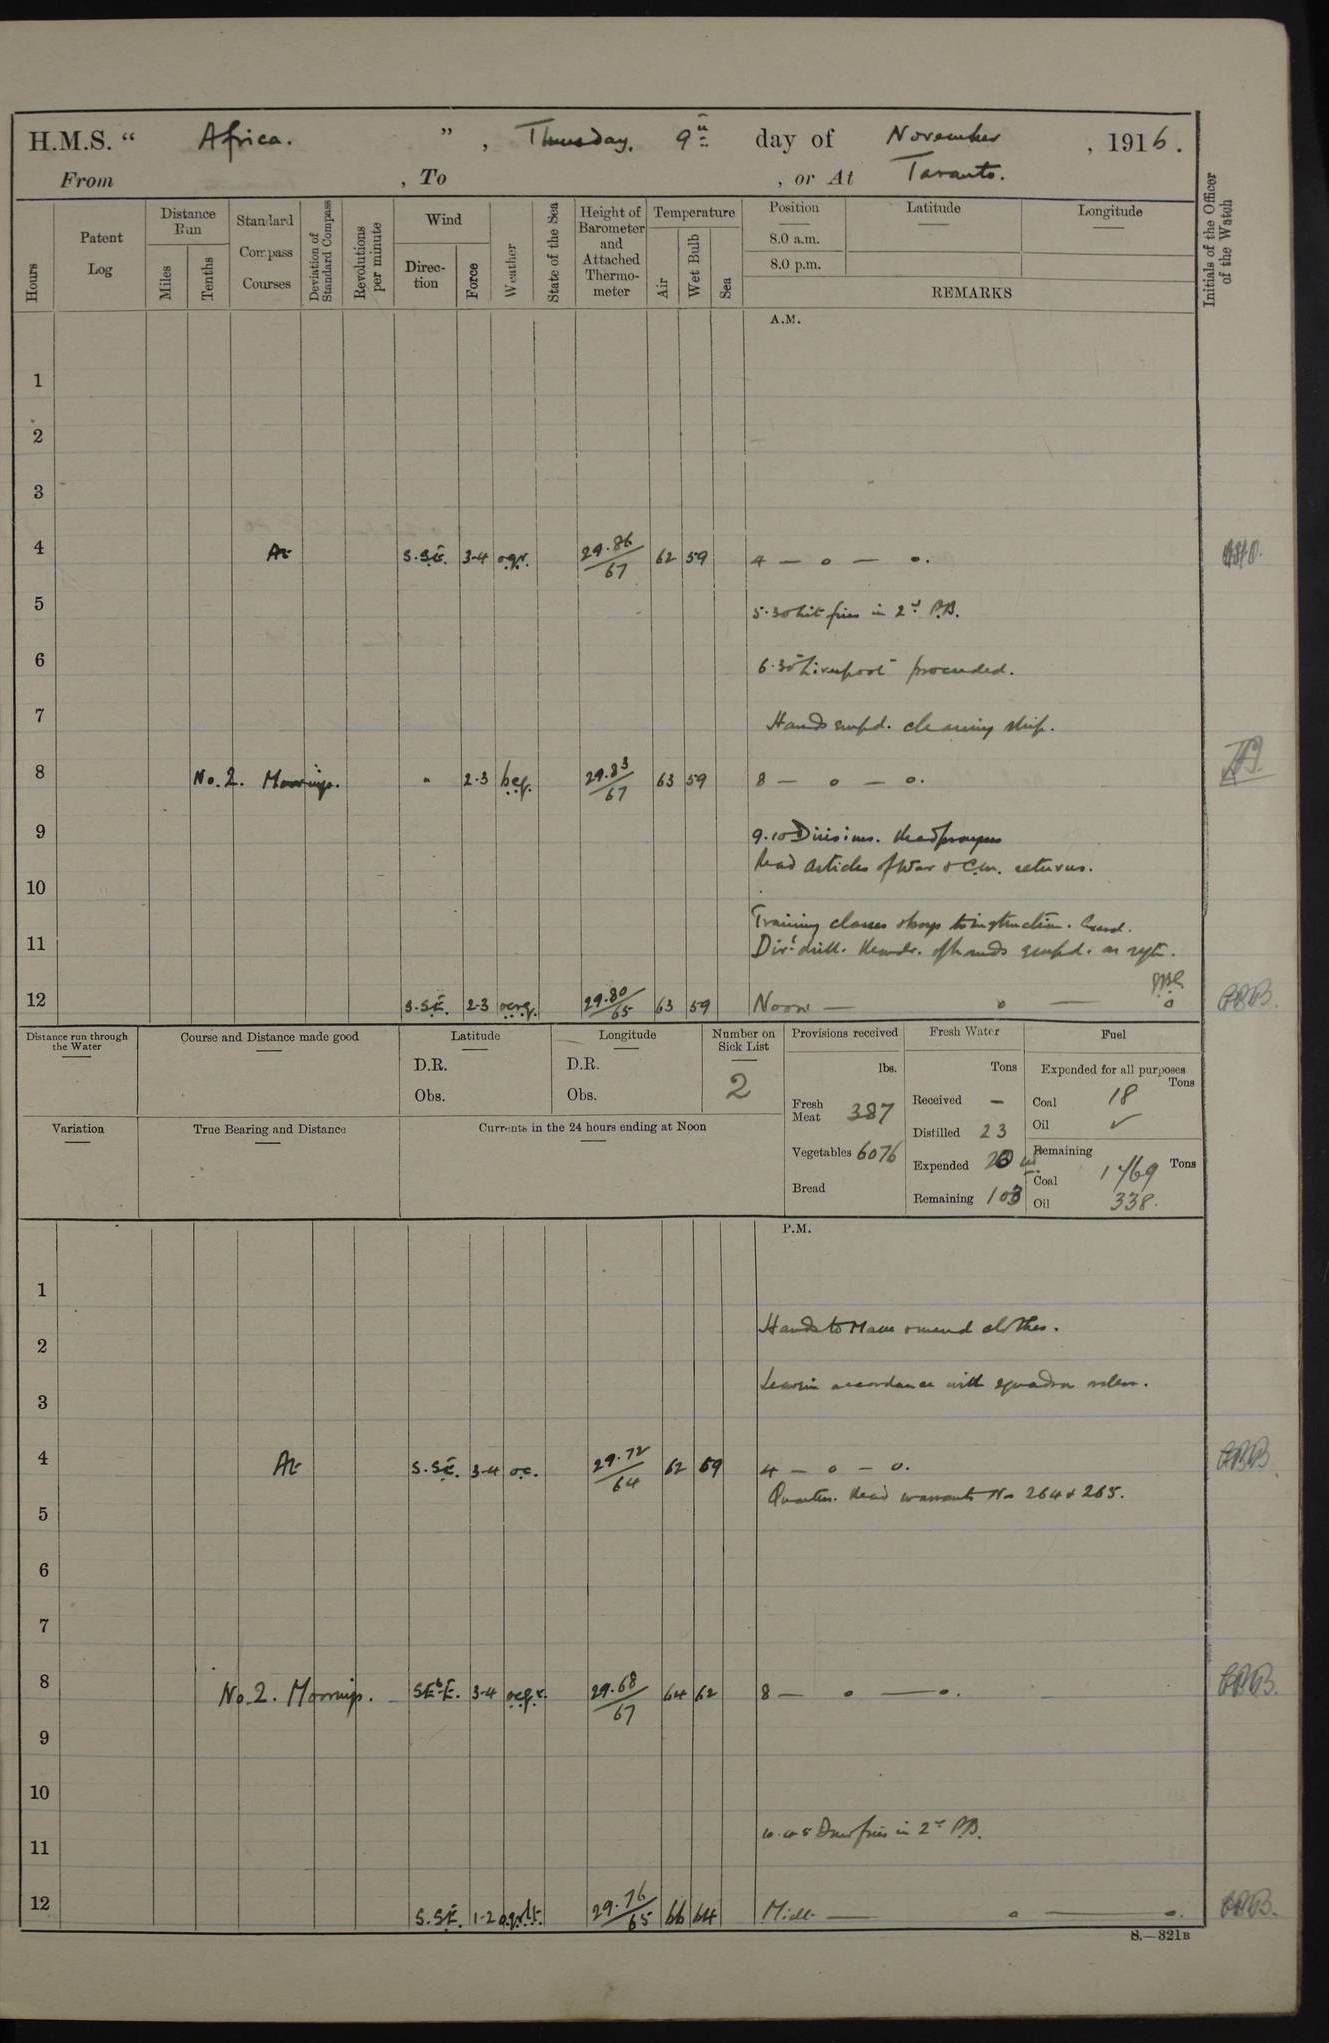 H.M.S. “ Africa. ” , Thursday, 9th day of November , 1916.
From , To , or At Taranto.
Hours
Patent Log
Distance Run
Miles
Tenths
Standard Compass Courses
Deviation of Standard Compass
Revolutions per minute
Wind
Direction
Force
Weather
State of the Sea
Height of Barometer and Attached Thermometer
Temperature
Air
Wet Bulb
Sea
Position
8.0 a.m.
8.0 p.m.
Latitude
Longitude
REMARKS
Initials of the Officer of the Watch
A.M.
1
2
3
4 At S.S.E. 3-4 o.q.r. 29.86/67 62 59 4 — o — o.
5 5.30 Lit fires in 2nd P.B.
6 6.30 "Liverpool" proceeded.
7 Hands empd. cleaning ship.
8 No. 2. Moorings. " 2-3 b.c.q. 29.83/67 63 59 8 — o — o.
9 9.10 Divisions. Read prayers
Read Articles of War & C.M. returns.
10
Training classes & boys to instruction. Guard.
11 Divl drill. Remdr. of hands empd. as reqte.
12 S.S.E. 2-3 o.c.r.q. 29.80/65 63 59 Noon — o — o
Distance run through the Water
Course and Distance made good
Latitude
D.R.
Obs.
Longitude
D.R.
Obs.
Number on Sick List
2
Provisions received
lbs.
Fresh Meat 387
Vegetables 6076
Bread
Fresh Water
Tons
Received —
Distilled 23
Expended 20
Remaining 103
Fuel
Expended for all purposes
Tons
Coal 18
Oil ✓
Remaining
Coal 1769 Tons
Oil 338.
Variation
True Bearing and Distance
Currents in the 24 hours ending at Noon
P.M.
1
Hands to Make & mend clothes.
2
Leave in accordance with squadron orders.
3
4 At S.S.E. 3-4 o.c. 29.72/64 62 59 4 — o — o.
Quarters. Read warrants No 264 & 265.
5
6
7
8 No. 2. Moorings. SEbE. 3-4 o.c.q.r. 29.68/67 64 62 8 — o — o.
9
10
10.45 Drew fires in 2nd P.B.
11
12 S.S.E. 1-2 29.76/65 66 64 Midt. — o — o.
S.—321B